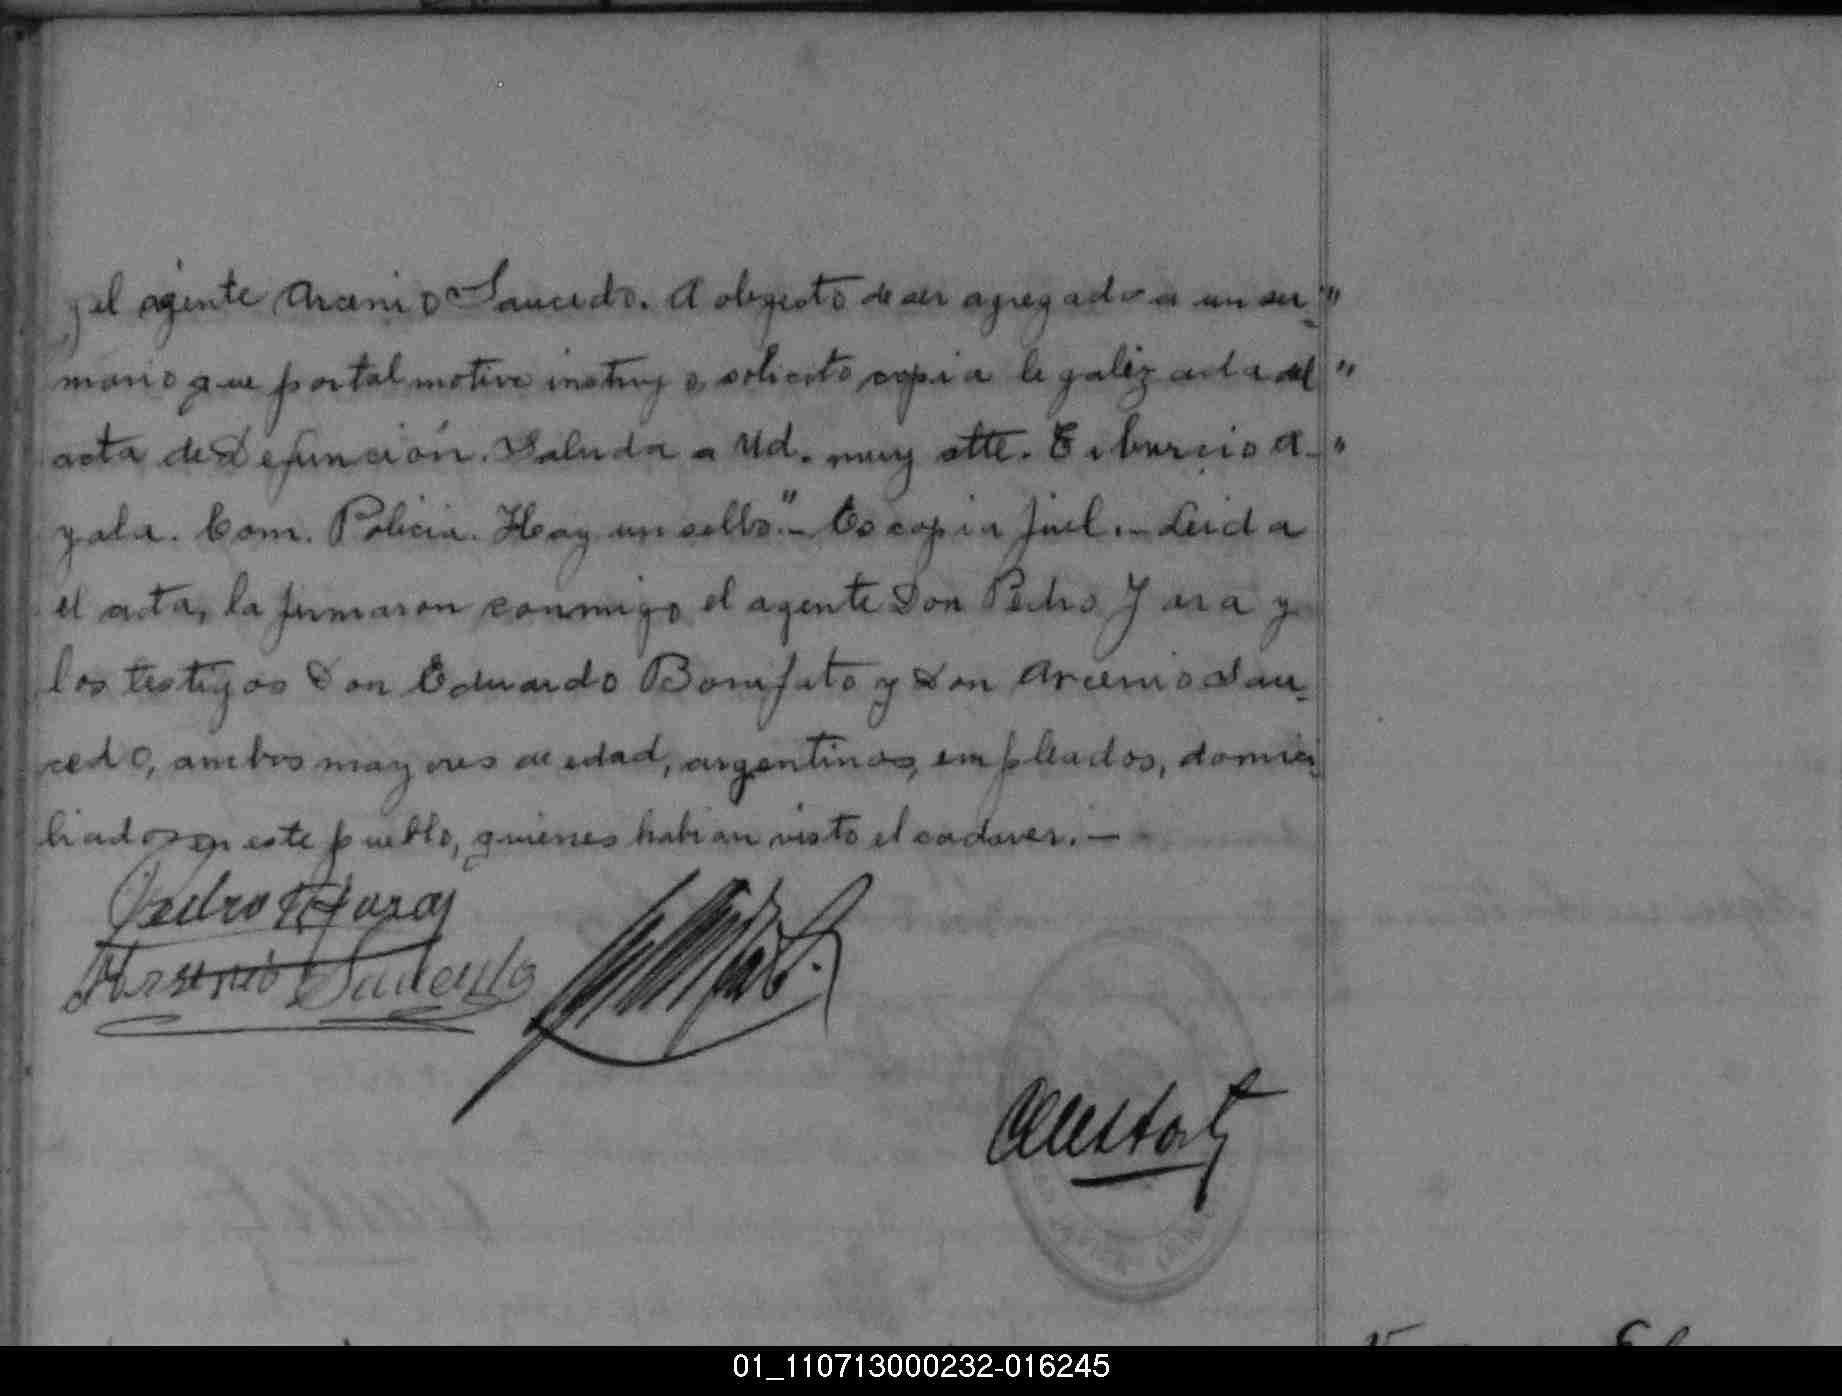 y el agente Arcenio Saucedo. A obgecto de ser agregado a un su- "
mario que por tal motivo instruyo, solicito copia legalizada del "
acta de Defunción. Saluda a Ud. muy atte. Tiburcio A- "
yala. Com. Policia. Hay un sello". - Es copia fiel. - Leida
el acta, la firmaron conmigo el agente Don Pedro Jara y
los testigos Don Eduardo Bonifato y Don Arcenio Sau-
cedo, ambos mayores de edad, argentinos, empleados, domici-
liados en este pueblo, quienes habian visto el cadaver. -
Pedro Jara
Arsenio Saucedo
01_110713000232-016245